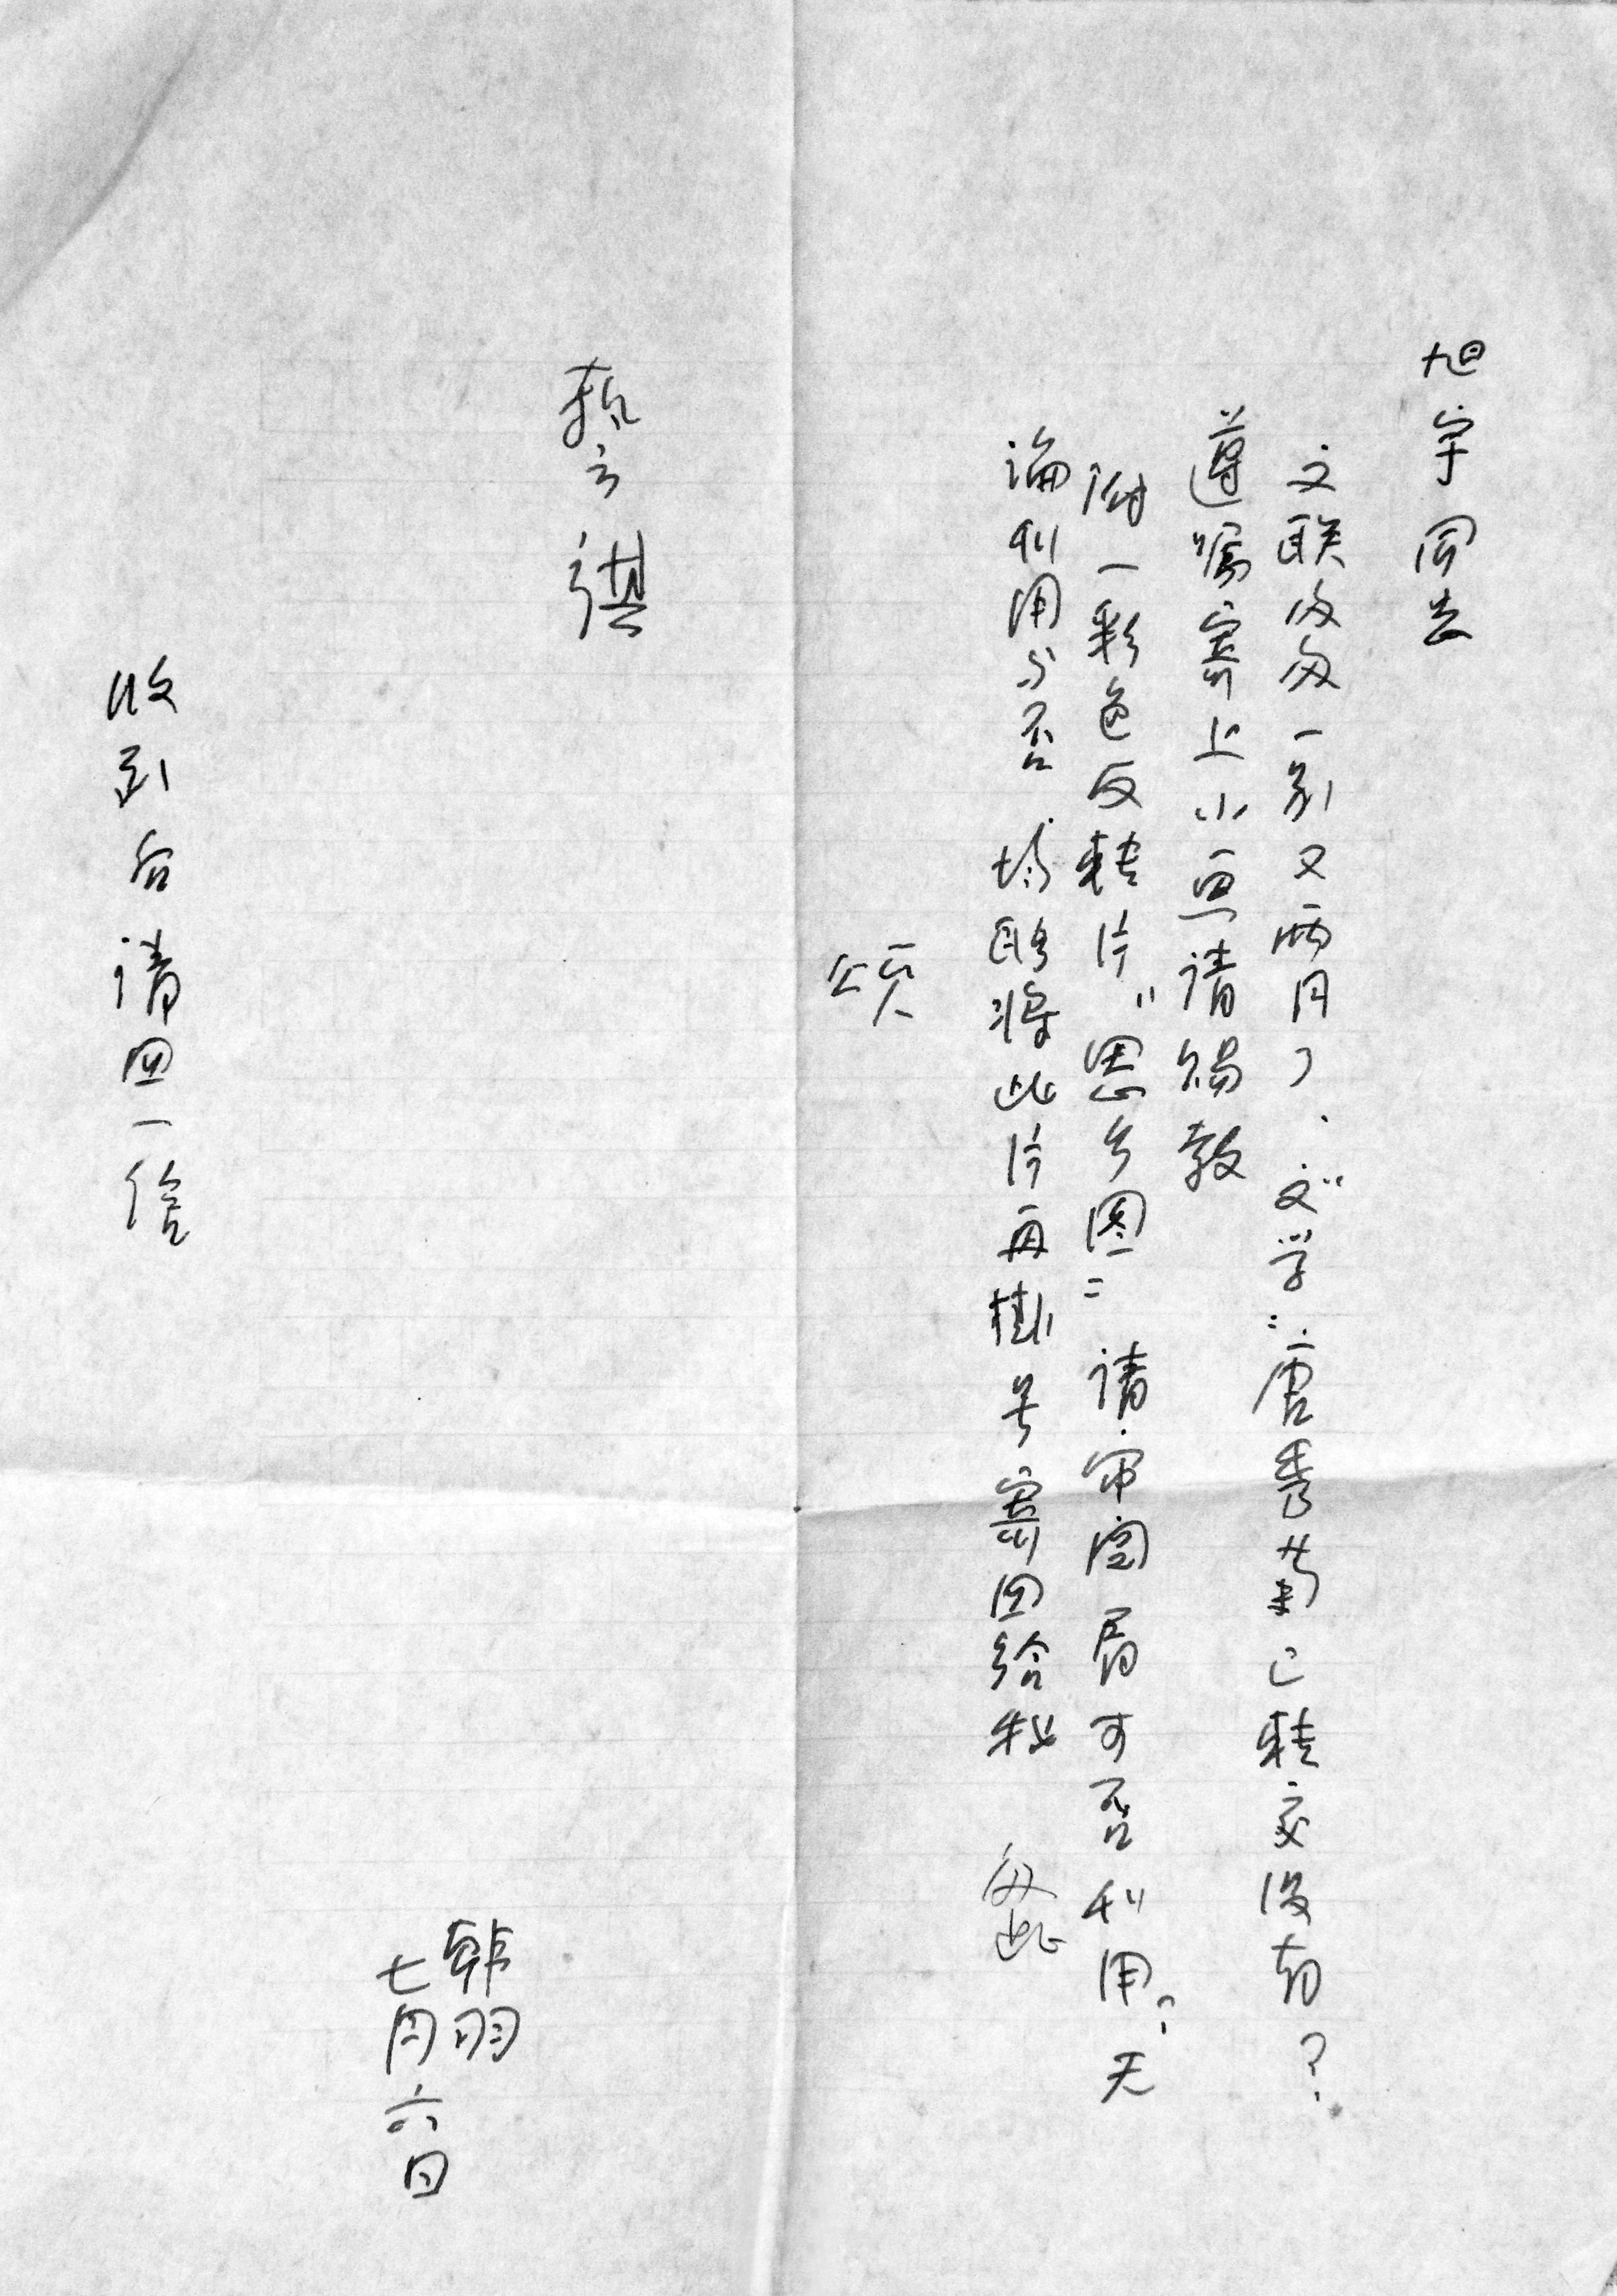 旭宇同志
文联匆匆一别又两月了.“文学”:唐秀َ已转交没有?
遵嘱寄上小画请赐教
附一彩色反转片“思乡图”请审阅看可否利用?无
论利用与否 均盼将此片再挂号寄回给我 匆此
颂
撰祺
韩羽
七月六日
收到后请回一信